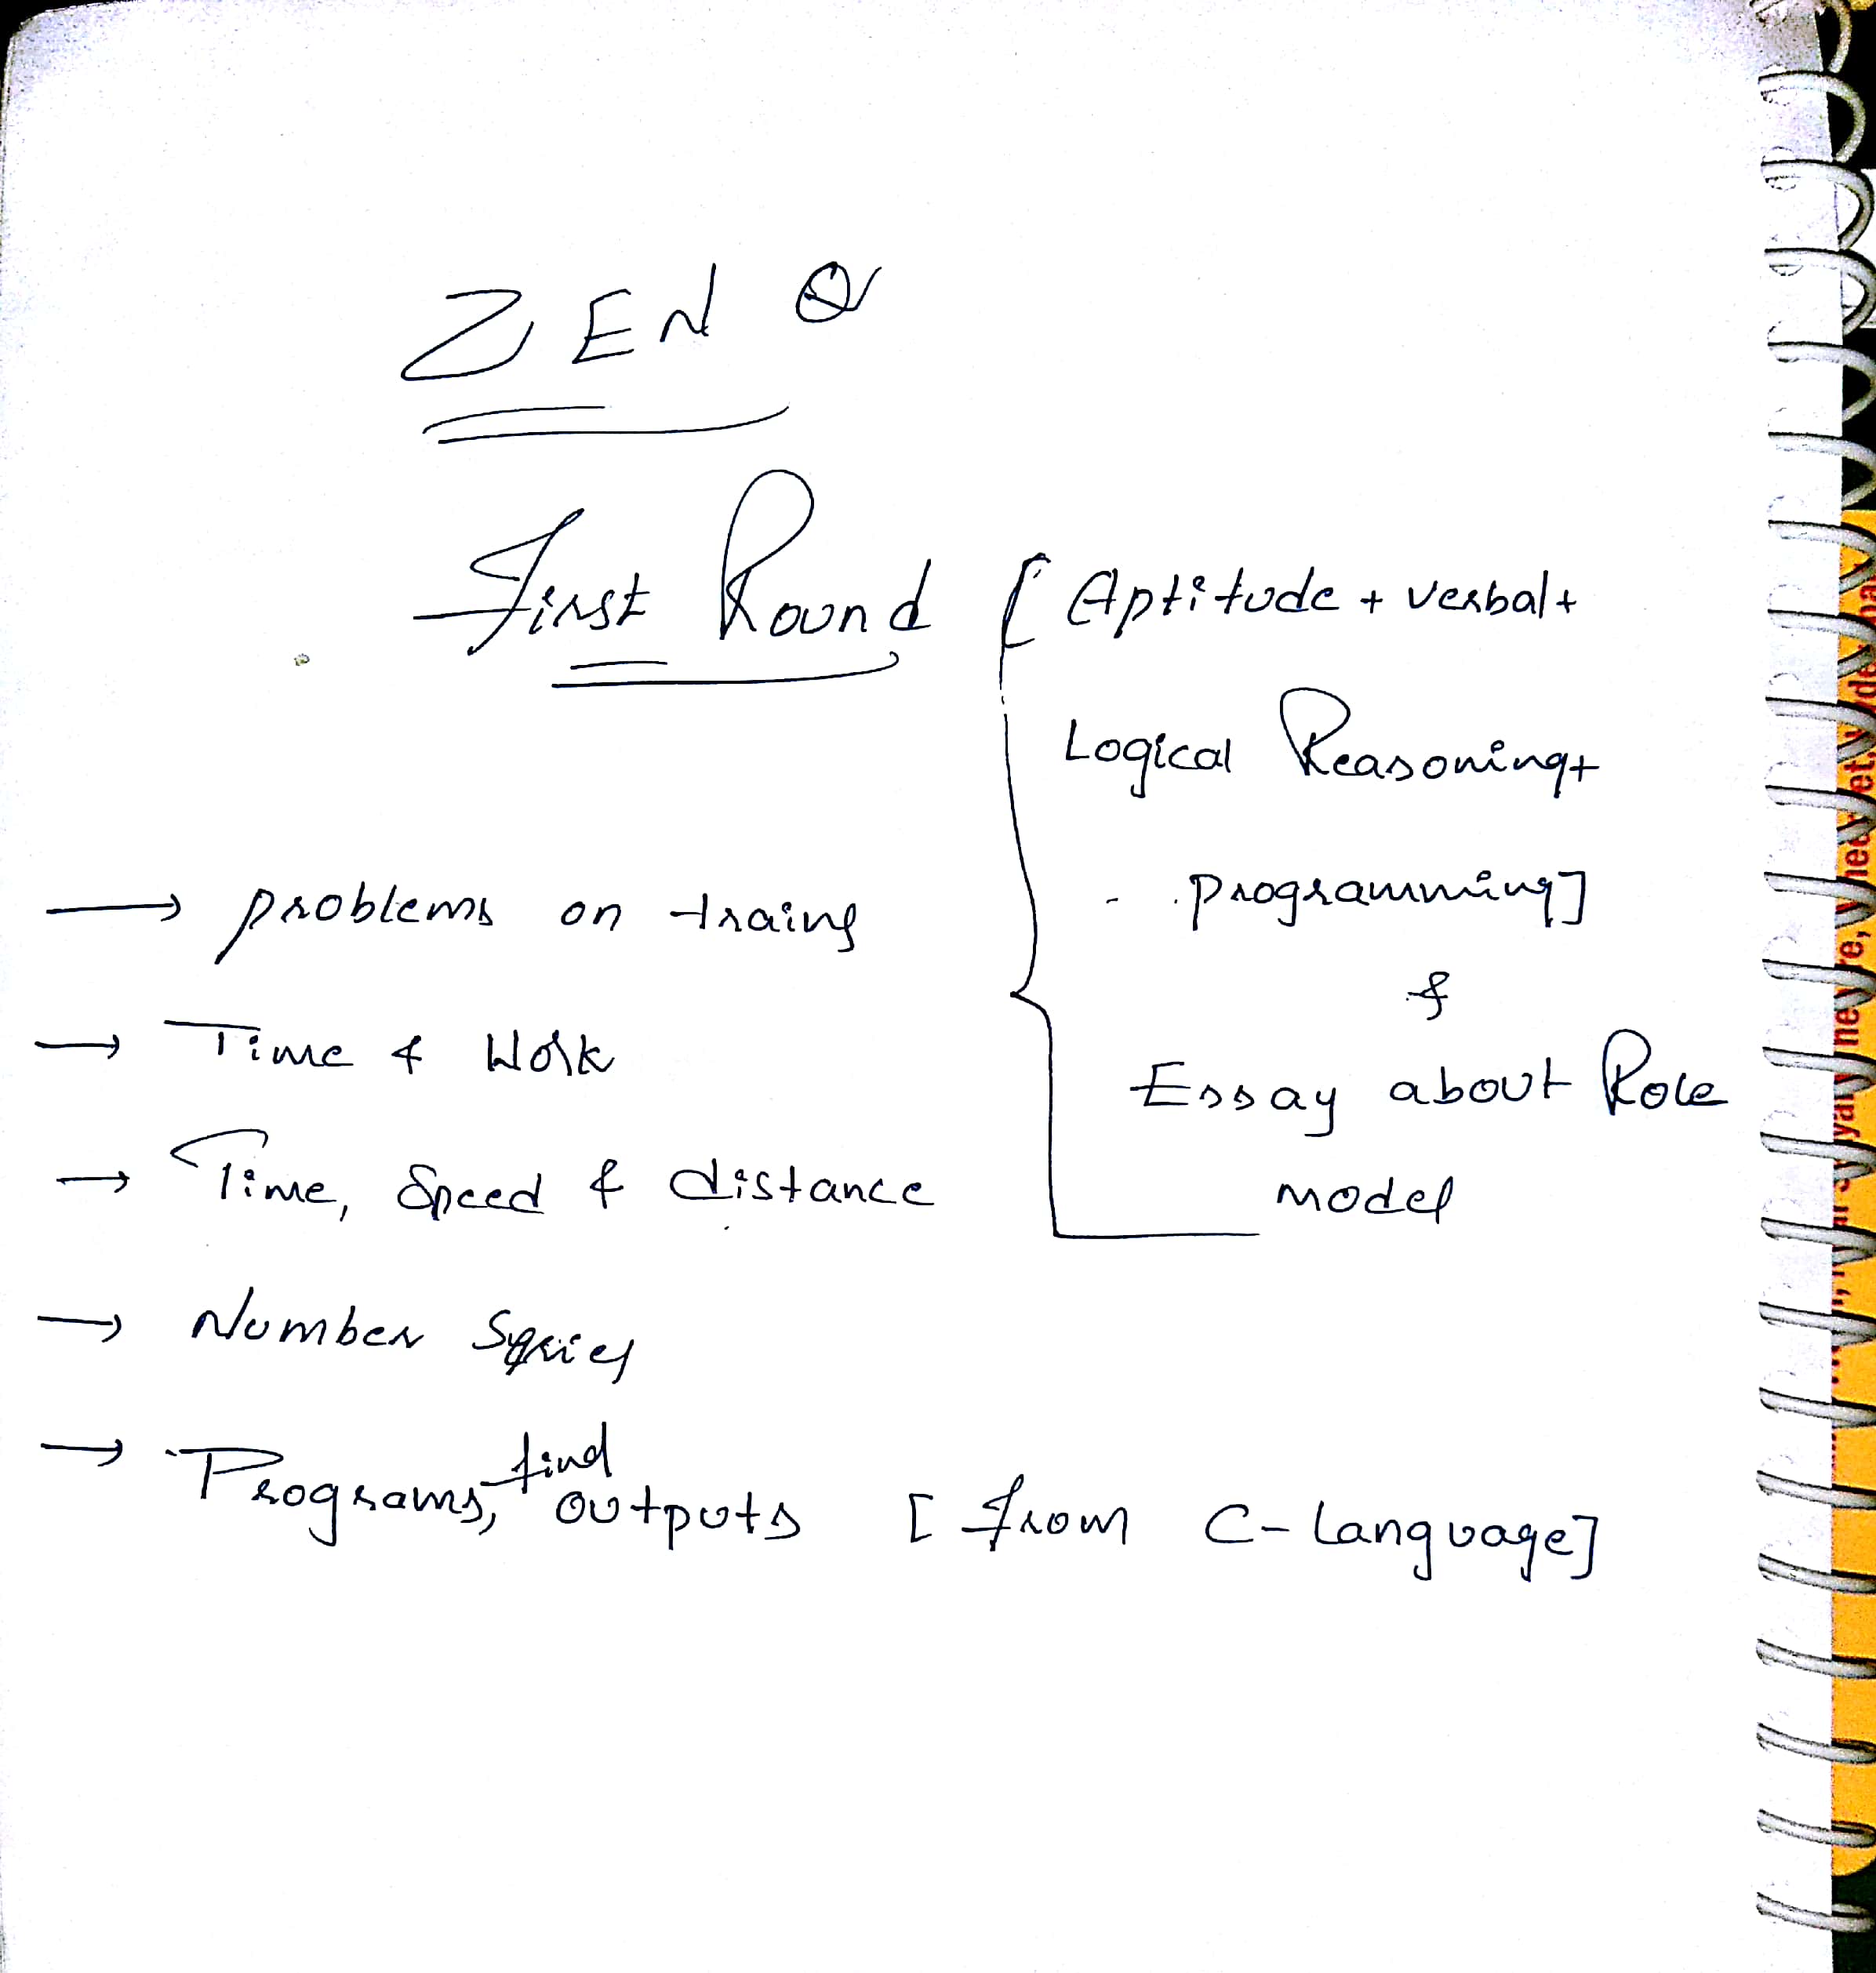 ZEN Q
First Round [ Aptitude + verbal +
Logical Reasoning +
programming ]
&
Essay about Role
model
→ problems on trains
→ Time & Work
→ Time, Speed & distance
→ Number Series
→ Programs, find outputs [ from C-Language ]